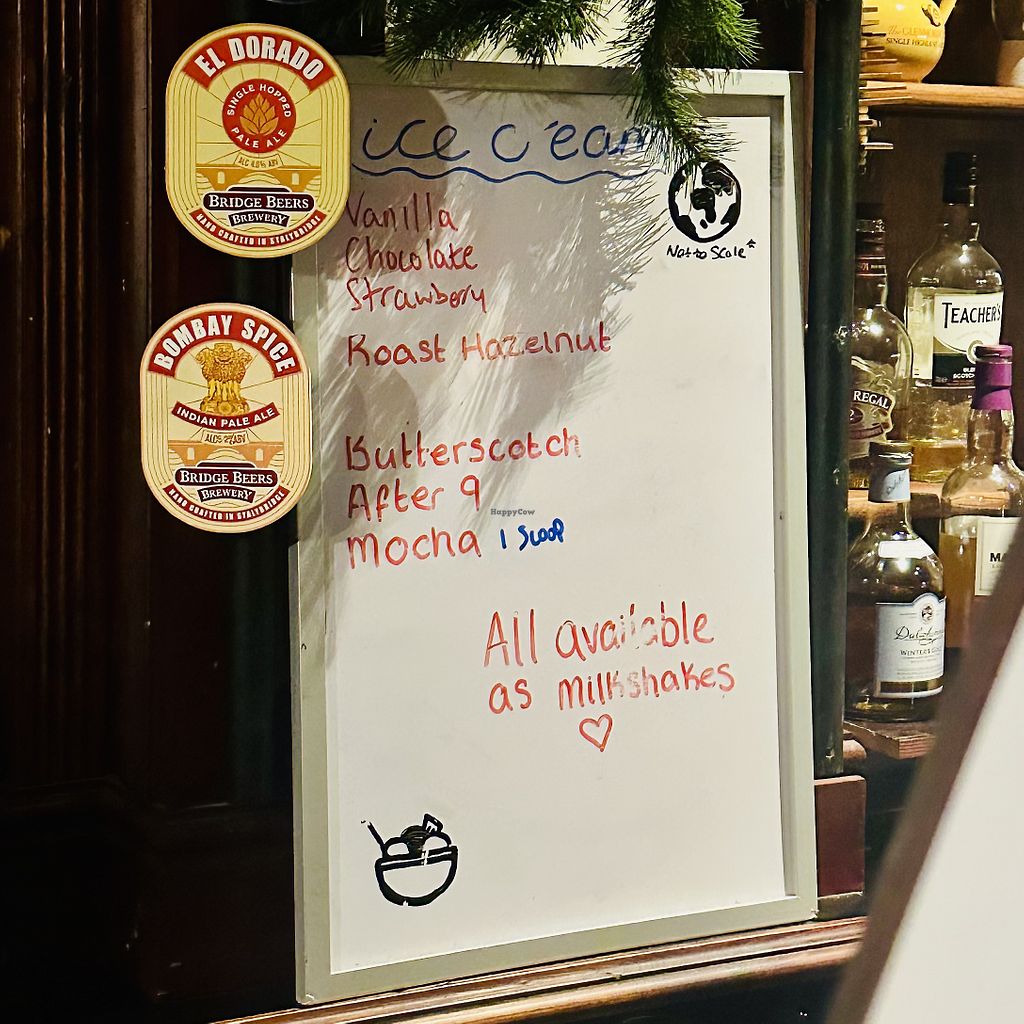 EL DORADO
SINGLE HOPPED
PALE ALE
BRIDGE BEERS
BREWERY
HAND CRAFTED IN STALYBRIDGE
BOMBAY SPICE
INDIAN PALE ALE
BRIDGE BEERS
BREWERY
HAND CRAFTED IN STALYBRIDGE
ice cream
Not to Scale
Vanilla
Chocolate
Strawberry
Roast Hazelnut
Butterscotch
After 9
Mocha 1 Scoop
All available
as milkshakes
HappyCow
SINGLE HIGHLAND
TEACHER'S
REGAL
WINTER'S